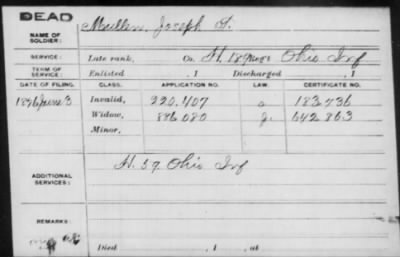 DEAD
NAME OF SOLDIER: Mullen, Joseph
SERVICE: Late rank, Co. H. 189 Reg't Ohio Inf
TERM OF SERVICE: Enlisted , 1 Discharged , 1
DATE OF FILING. CLASS. APPLICATION NO. LAW. CERTIFICATE NO.
1876 June 3 Invalid, 220.407 183.736
Widow, 896.080 642.863
Minor,
ADDITIONAL SERVICES: H. 57 Ohio Inf
REMARKS:
Died , 1 , at